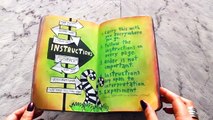 INSTRUCTIONS
1. Carry this with
you everywhere
you go.
2. Follow the
instructions on
every page.
3. Order is not
important.
4. Instructions
are open to
interpretation.
5. Experiment.